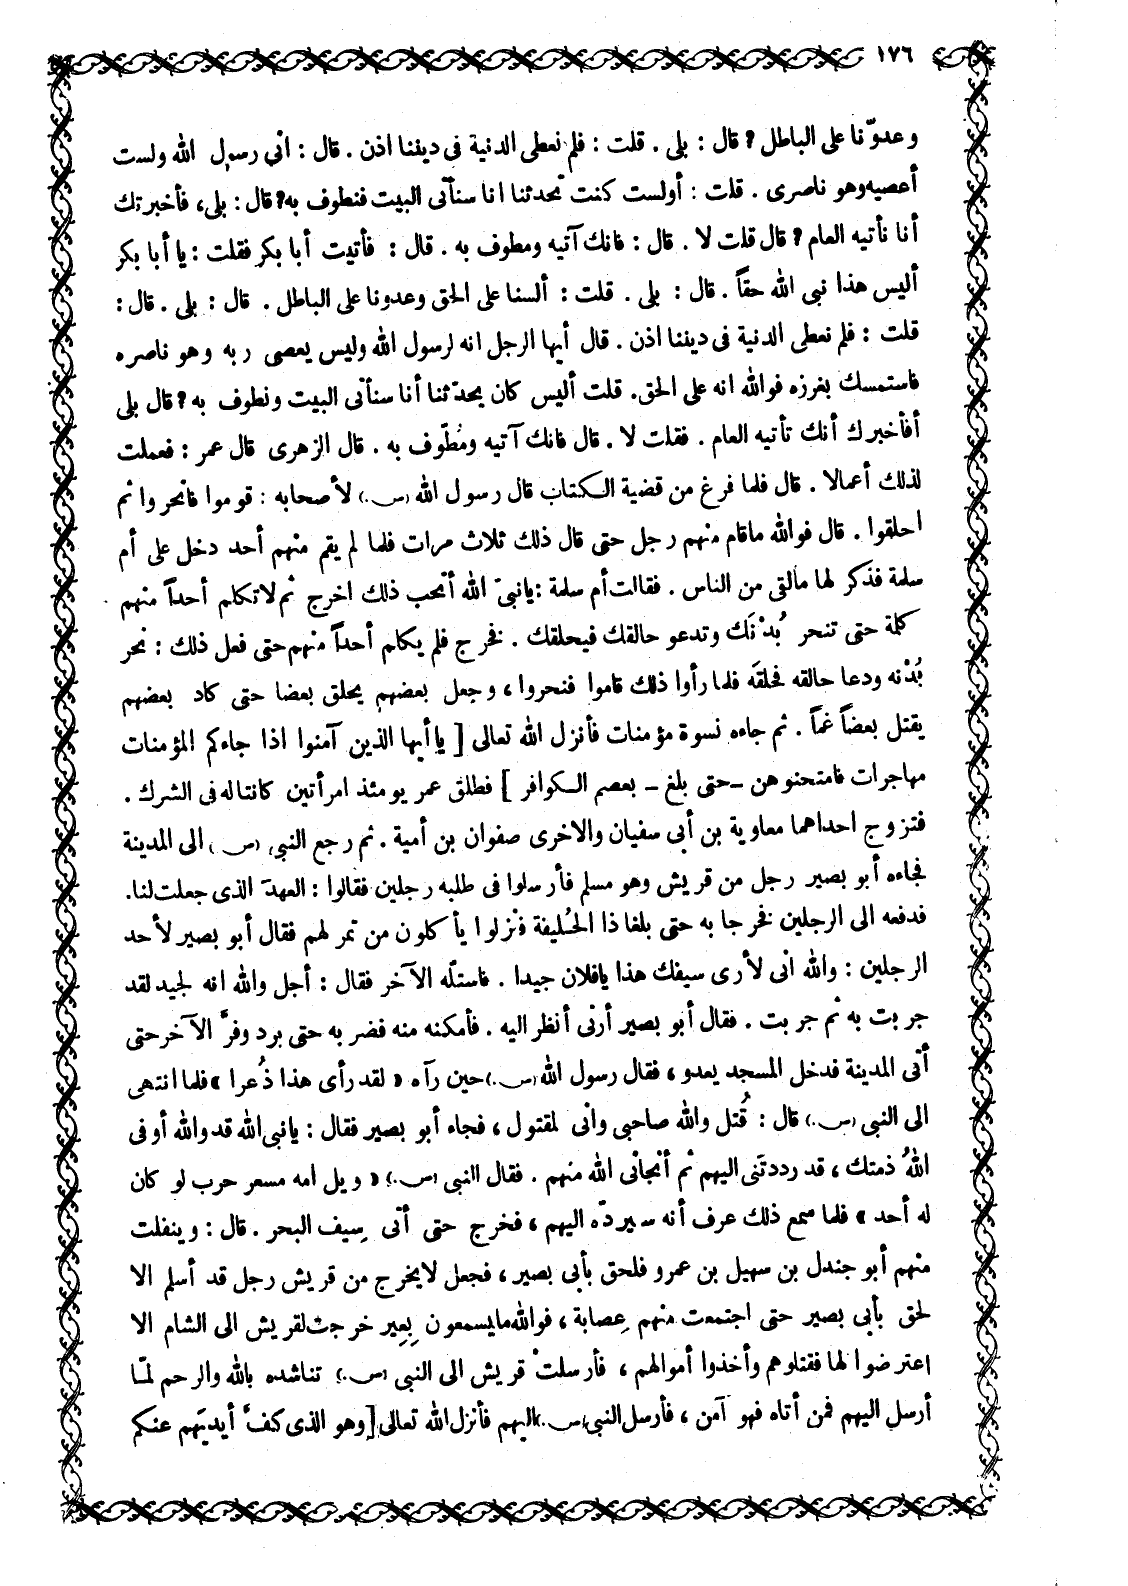 ١٧٦
وعدوّنا على الباطل ? قال : بلى . قلت : فلم نعطى الدنية فى ديننا اذن . قال : انى رسول الله ولست
أعصيه وهو ناصرى . قلت : أولست كنت تحدثنا انا سنأتى البيت فنطوف به? قال : بلى ، فأخبرتك
أنا نأتيه العام ? قال قلت لا . قال : فانك آتيه ومطوف به . قال : فأتيت أبا بكر فقلت : يا أبا بكر
أليس هذا نبى الله حقاً . قال : بلى . قلت : ألسنا على الحق وعدونا على الباطل . قال : بلى . قال :
قلت : فلم نعطى الدنية فى ديننا اذن . قال أيها الرجل انه لرسول الله وليس يعصى ربه وهو ناصره
فاستمسك بغرزه فوالله انه على الحق. قلت أليس كان يحدّثنا أنا سنأتى البيت ونطوف به ? قال بلى
أفأخبرك أنك تأتيه العام . فقلت لا . قال فانك آتيه ومُطّوف به . قال الزهرى قال عمر : فعملت
لذلك أعمالا . قال فلما فرغ من قضية الكتاب قال رسول الله (ص) لأصحابه : قوموا فانحروا ثم
احلقوا . قال فوالله ماقام منهم رجل حتى قال ذلك ثلاث مرات فلما لم يقم منهم أحد دخل على أم
سلمة فذكر لها مالقى من الناس . فقالت أم سلمة : يانبىّ الله أتحب ذلك اخرج ثم لاتكلم أحداً منهم
كلمة حتى تنحر بُدْنَك وتدعو حالقك فيحلقك . فخرج فلم يكلم أحداً منهم حتى فعل ذلك : نحر
بُدْنه ودعا حالقه فحلقَه فلما رأوا ذلك قاموا فنحروا ، وجعل بعضهم يحلق بعضا حتى كاد بعضهم
يقتل بعضاً غماً . ثم جاءه نسوة مؤمنات فأنزل الله تعالى [ يا أيها الذين آمنوا اذا جاءكم المؤمنات
مهاجرات فامتحنوهن -حتى بلغ - بعصم الكوافر ] فطلق عمر يومئذ امرأتين كانتا له فى الشرك .
فتزوج احداهما معاوية بن أبى سفيان والاخرى صفوان بن أمية . ثم رجع النبى (ص) الى المدينة
فجاءه أبو بصير رجل من قريش وهو مسلم فأرسلوا فى طلبه رجلين فقالوا : العهدَ الذى جعلت لنا.
فدفعه الى الرجلين فخرجا به حتى بلغا ذا الحُليفة فنزلوا يأكلون من تمر لهم فقال أبو بصير لأحد
الرجلين : والله انى لأرى سيفك هذا يافلان جيدا . فاستلّه الآخر فقال : أجل والله انه لجيد لقد
جربت به ثم جربت . فقال أبو بصير أرنى أنظر اليه . فأمكنه منه فضربه حتى برد وفرَّ الآخر حتى
أتى المدينة فدخل المسجد يعدو ، فقال رسول الله (ص) حين رآه « لقد رأى هذا ذُعرا » فلما انتهى
الى النبى (ص) قال : قُتل والله صاحبى وانى لمقتول ، فجاء أبو بصير فقال : يانبى الله قد والله أوفى
اللهُ ذمتك ، قد رددتَنى اليهم ثم أنجانى الله منهم . فقال النبى (ص) « ويل امه مسعر حرب لو كان
له أحد » فلما سمع ذلك عرف أنه سيردّه اليهم ، فخرج حتى أتى سِيف البحر . قال : وينفلت
منهم أبو جندل بن سهيل بن عمرو فلحق بأبى بصير ، فجعل لايخرج من قريش رجل قد أسلم الا
لحق بأبى بصير حتى اجتمعت منهم عِصابة ، فوالله مايسمعون بِعِير خرجت لقريش الى الشام الا
اعترضوا لها فقتلوهم وأخذوا أموالهم ، فأرسلتْ قريش الى النبى (ص) تناشده بالله والرحم لمّا
أرسل اليهم فمن أتاه فهو آمن ، فأرسل النبى (ص) اليهم فأنزل الله تعالى [ وهو الذى كفَّ أيديَهم عنكم